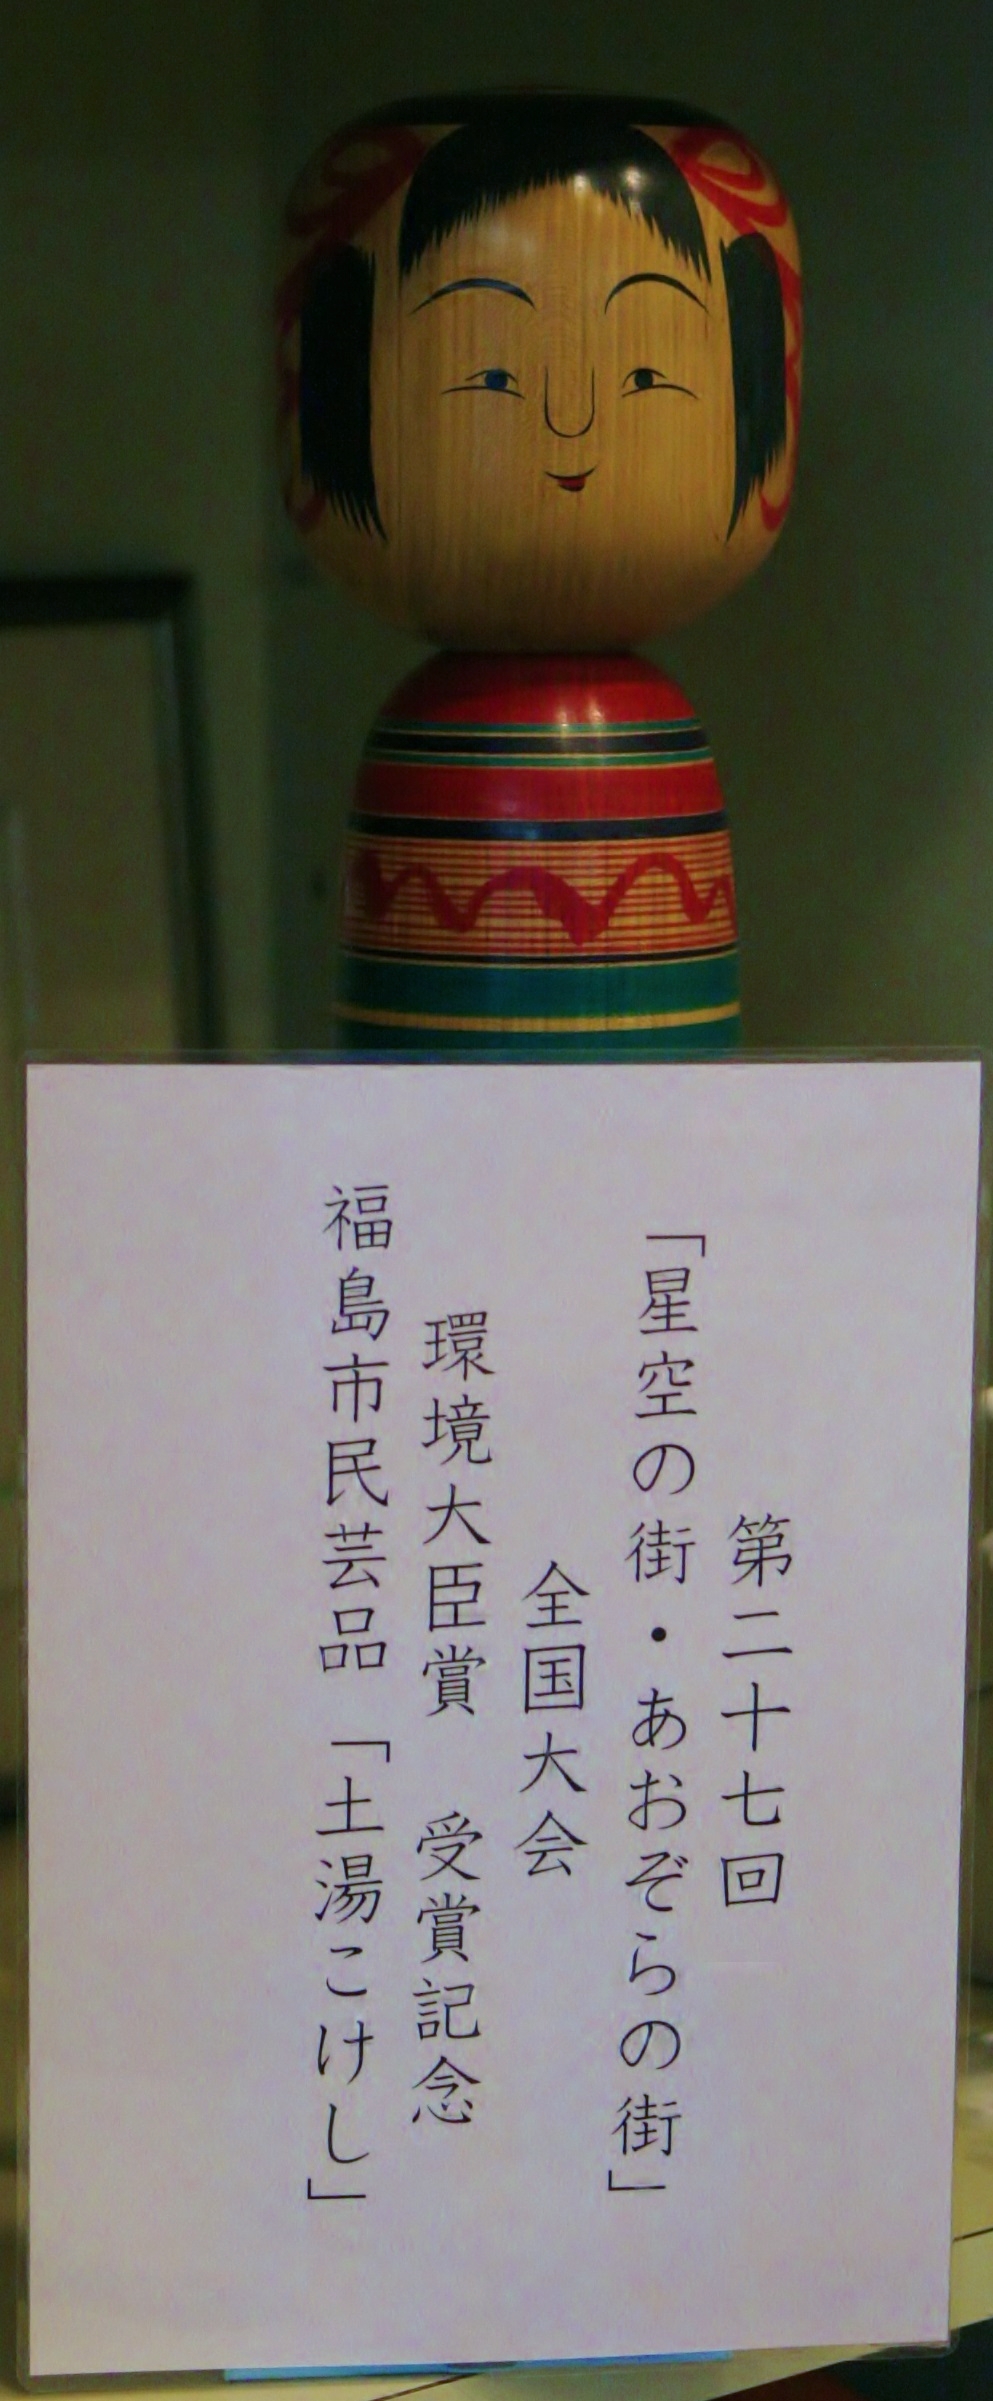 第二十七回
「星空の街・あおぞらの街」
全国大会
環境大臣賞　受賞記念
福島市民芸品「土湯こけし」